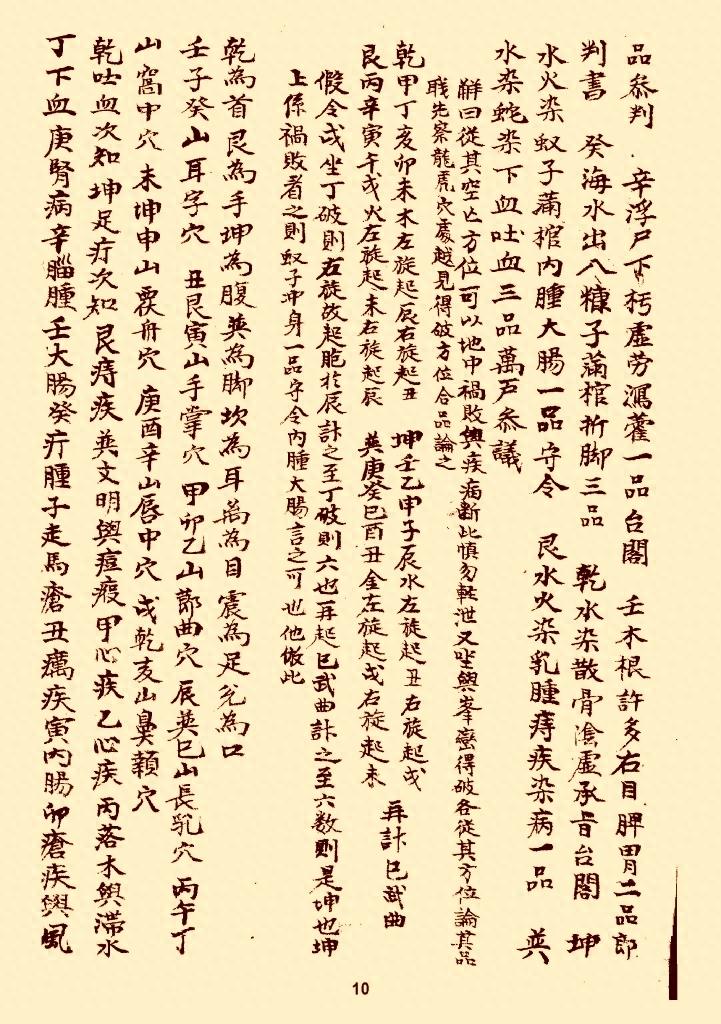 品叅判 辛浮尸下朽虛劳瀉藿一品台閣 壬木根許多右目脾胃二品郎
判書 癸海水出八糠子蕳棺折脚三品 乾水染散骨陰虛承旨台閣 坤
水火染蚁子蕳棺内腫大腸一品守令 艮水火染乳腫痔疾染病一品 㢲
水染蛇染下血吐血三品萬戶叅議
觧曰從其空亡方位可以地中禍敗與疾病斷此慎勿輕泄又坐與峯巒得破各從其方位論其品
職先察龍虎穴處越見得破方位合品論之
乾甲丁亥卯未木左旋起辰右旋起丑 坤壬乙申子辰水左旋起丑右旋起戌
艮丙辛寅午戌火左旋起未右旋起辰 㢲庚癸巳酉丑金左旋起戌右旋起未 再計巳武曲
假令戌坐丁破則右旋故起胞於辰計之至丁破則六也再起巳武曲計之至六数則是坤也坤
上係禍敗者之則蚁子冲身一品守令内腫大腸言之可也他倣此
乾為首艮為手坤為腹㢲為脚坎為耳离為目震為足兊為口
壬子癸山耳字穴 丑艮寅山手掌穴 甲卯乙山節曲穴 辰㢲巳山長乳穴 丙午丁
山窩中穴 未坤申山覆舟穴 庚酉辛山唇中穴 戌乾亥山鼻顙穴
乾吐血次知坤足疔次知艮痔疾㢲文明與痘疫甲心疾乙心疾丙落木與滞水
丁下血庚腎病辛腦腫壬大腸癸疔腫子走馬瘡丑癘疾寅内腸卯瘡疾與風
10